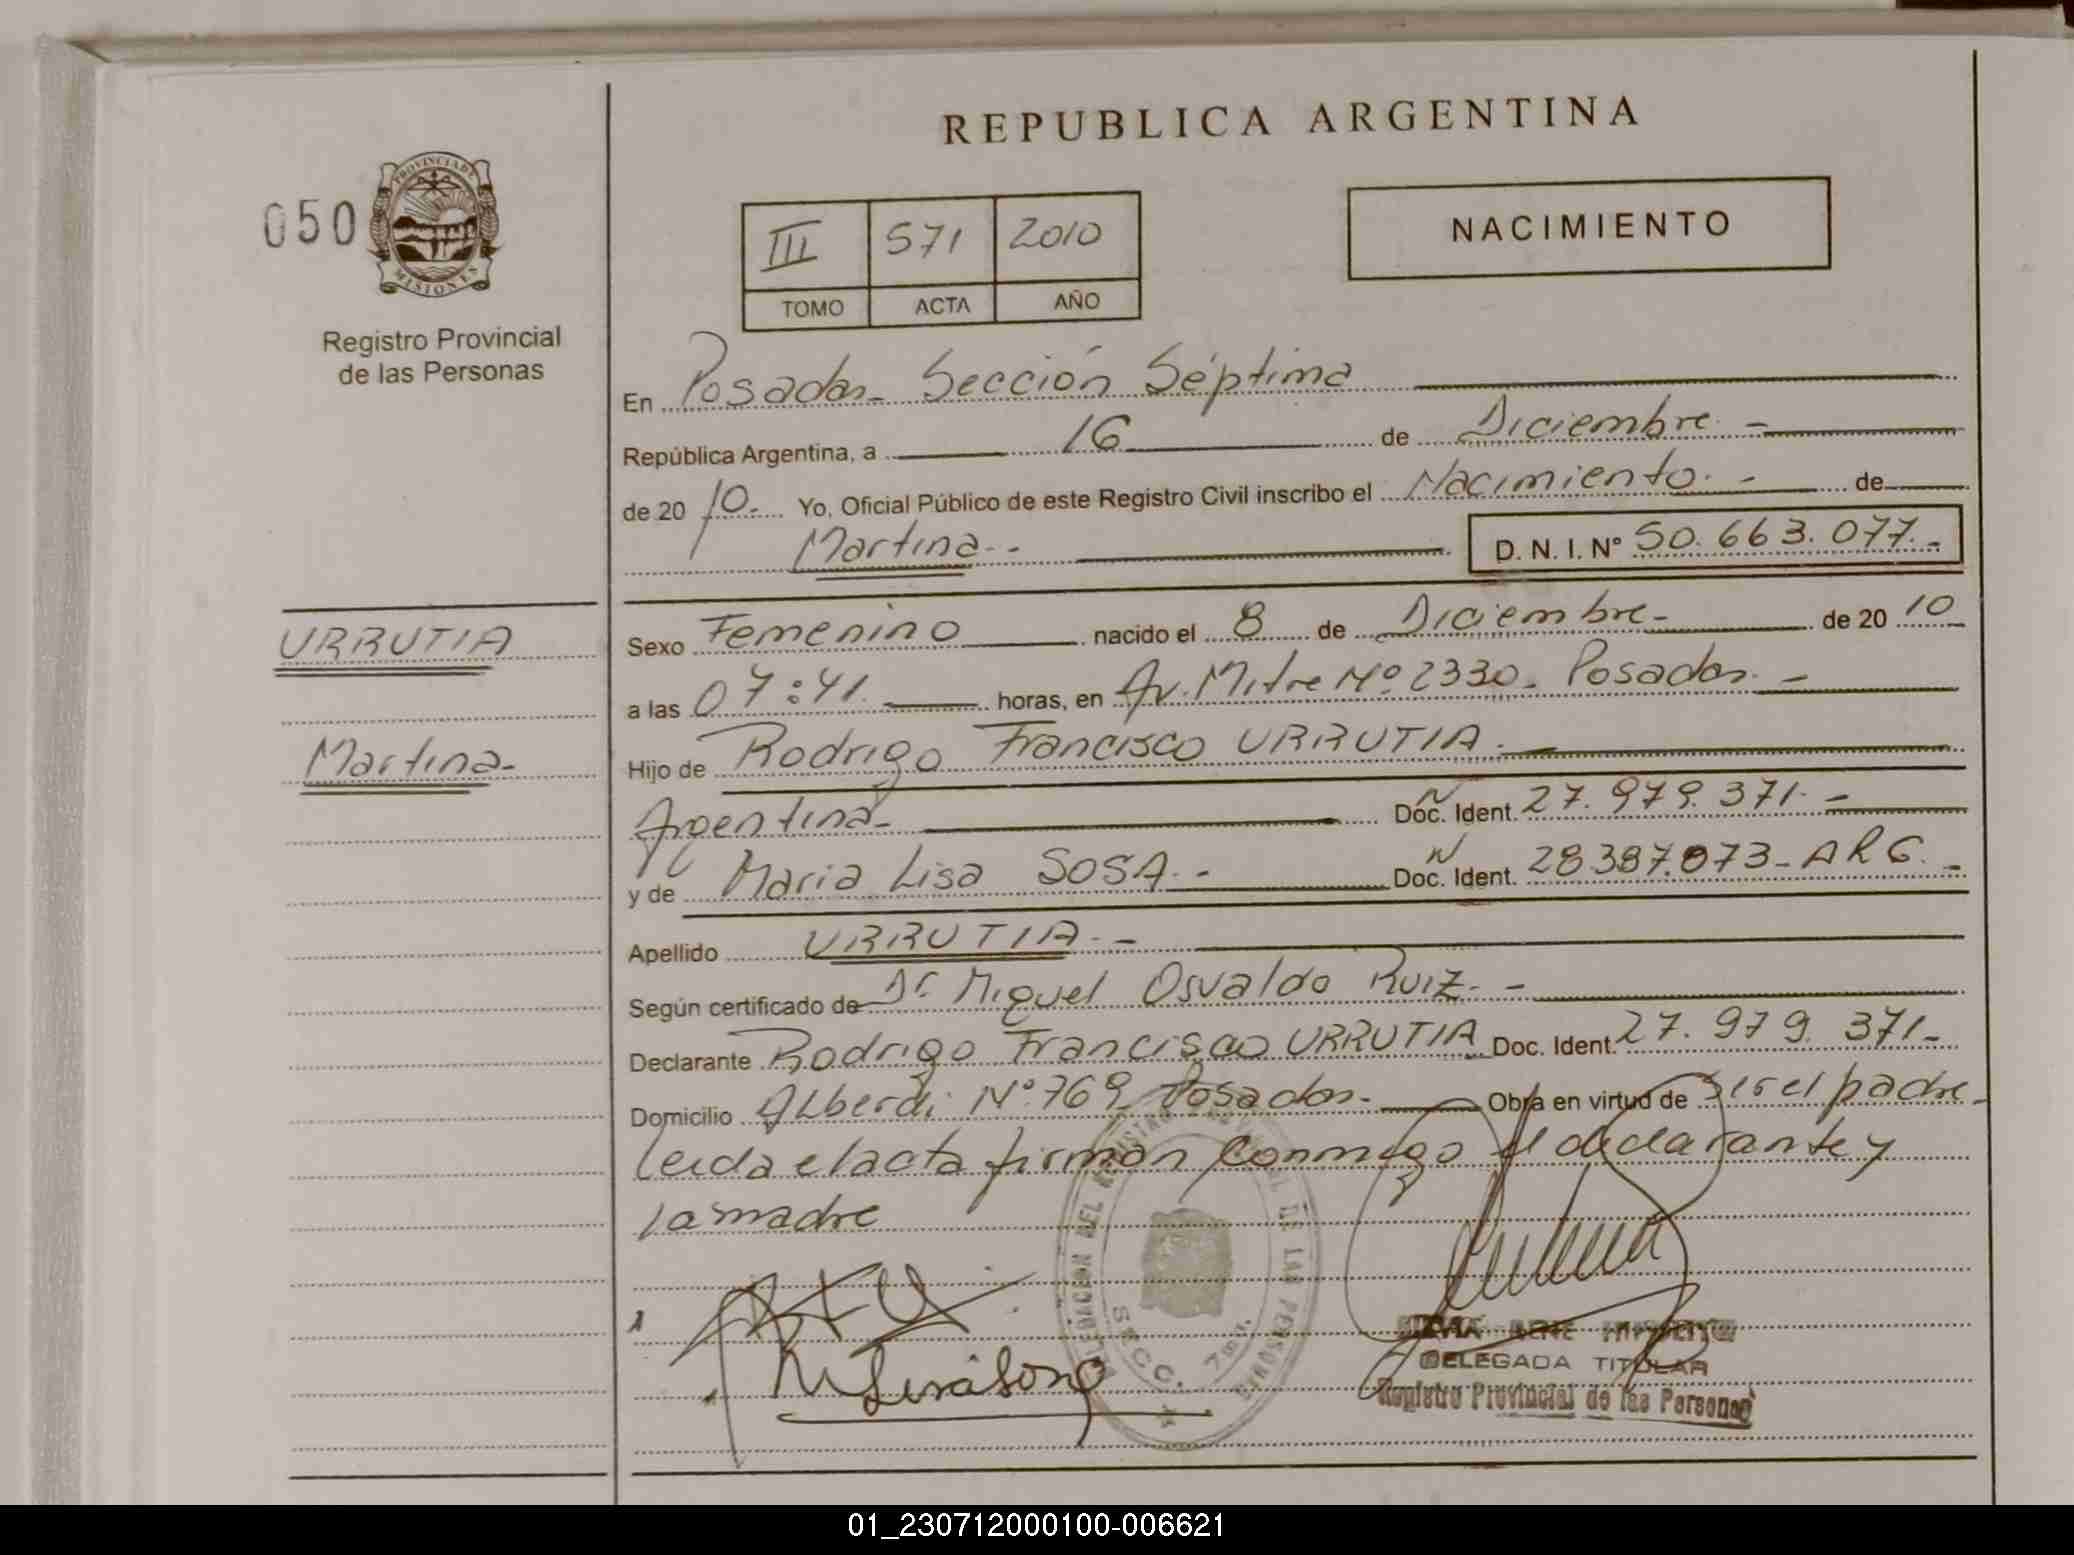 REPUBLICA ARGENTINA
050
PROVINCIA DE
MISIONES
Registro Provincial
de las Personas
III 571 2010
TOMO ACTA AÑO
NACIMIENTO
En Posadas - Sección Séptima
República Argentina, a 16 de Diciembre. -
de 20 10. Yo, Oficial Público de este Registro Civil inscribo el Nacimiento. - de
Martina. - D. N. I. Nº 50.663.077. -
URRUTIA
Martina-
Sexo Femenino nacido el 8 de Diciembre - de 20 10
a las 07:41. horas, en Av. Mitre Nº 2330. Posadas. -
Hijo de Rodrigo Francisco URRUTIA. -
Argentina - Doc. Ident. 27.979.371. -
y de Maria Lisa SOSA. - Doc. Ident. 28387.073 - ARG. -
Apellido URRUTIA. -
Según certificado de Dr. Miguel Osvaldo Ruiz. -
Declarante Rodrigo Francisco URRUTIA Doc. Ident. 27.979.371 -
Domicilio Alberdi Nº 769 Posadas. - Obra en virtud de ser el padre -
Leida el acta firman conmigo el declarante y
la madre
DELEGACION DEL REGISTRO PROVINCIAL DE LAS PERSONAS
SECC. 7ma.
DELEGADA TITULAR
Registro Provincial de las Personas
01_230712000100-006621